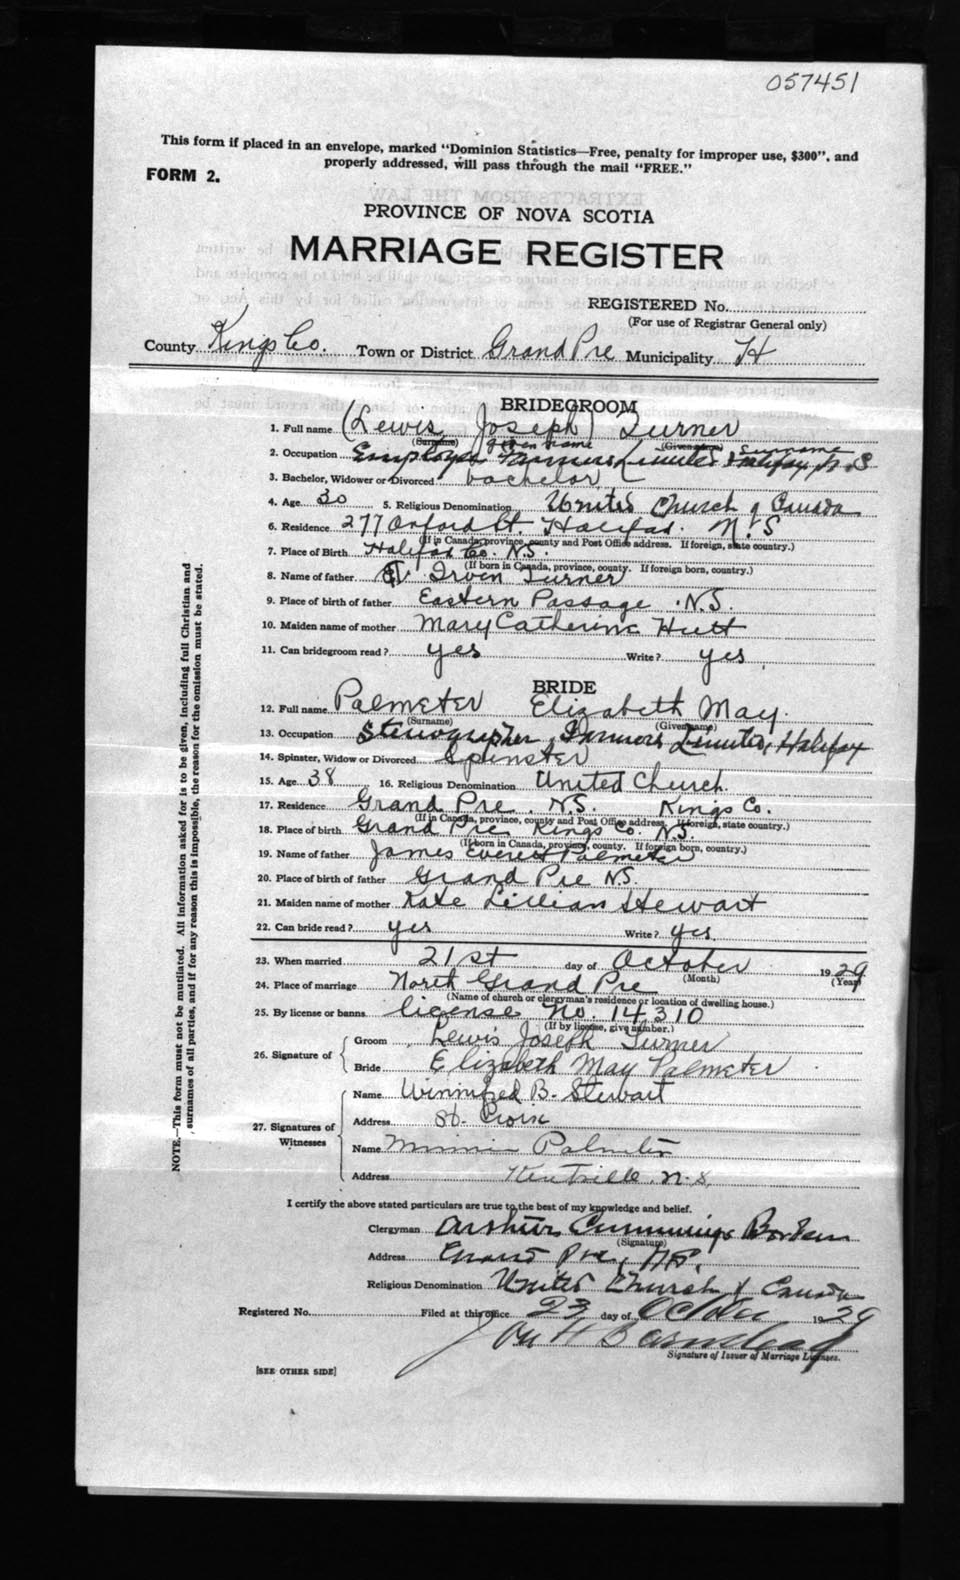 057451
This form if placed in an envelope, marked "Dominion Statistics—Free, penalty for improper use, $300", and
properly addressed, will pass through the mail "FREE."
FORM 2.
PROVINCE OF NOVA SCOTIA
MARRIAGE REGISTER
REGISTERED No.
(For use of Registrar General only)
County Kings Co. Town or District Grand Pre Municipality H
BRIDEGROOM
1. Full name (Lewis Joseph) Turner
(Surname) given name (Given name) Surname
2. Occupation Employee Farmers Limited Halifax N.S
3. Bachelor, Widower or Divorced bachelor
4. Age 30 5. Religious Denomination United Church of Canada
6. Residence 277 Oxford St. Halifax. N.S
(If in Canada, province, county and Post Office address. If foreign, state country.)
7. Place of Birth Halifax Co. N.S.
(If born in Canada, province, county. If foreign born, country.)
8. Name of father Irven Turner
9. Place of birth of father Eastern Passage N.S.
10. Maiden name of mother Mary Catherine Hutt
11. Can bridegroom read? yes Write? yes
BRIDE
12. Full name Palmeter Elizabeth May
(Surname) (Given name)
13. Occupation Stenographer, Farmers Limited, Halifax
14. Spinster, Widow or Divorced Spinster
15. Age 38 16. Religious Denomination United Church.
17. Residence Grand Pre N.S. Kings Co.
(If in Canada, province, county and Post Office address. If foreign, state country.)
18. Place of birth Grand Pre Kings Co. N.S.
(If born in Canada, province, county. If foreign born, country.)
19. Name of father James Everett Palmeter
20. Place of birth of father Grand Pre N.S.
21. Maiden name of mother Kate Lillian Stewart
22. Can bride read? yes Write? yes.
23. When married 21st day of October 1929
(Month) (Year)
24. Place of marriage North Grand Pre
(Name of church or clergyman's residence or location of dwelling house.)
25. By license or banns license No. 14,310
(If by license, give number.)
26. Signature of Groom Lewis Joseph Turner
Bride Elizabeth May Palmeter
27. Signatures of Witnesses Name Winnifred B. Stewart
Address St. Croix
Name Minnie Palmeter
Address Kentville. N.S.
I certify the above stated particulars are true to the best of my knowledge and belief.
Clergyman Arthur Cummings Borden
(Signature)
Address Grand Pre, N.S.
Religious Denomination United Church of Canada
Registered No. Filed at this office 23 day of October 1929
Jon H Barnstead
Signature of Issuer of Marriage Licenses.
[SEE OTHER SIDE]
NOTE.—This form must not be mutilated. All information asked for is to be given, including full Christian and
surnames of all parties, and if for any reason this is impossible, the reason for the omission must be stated.